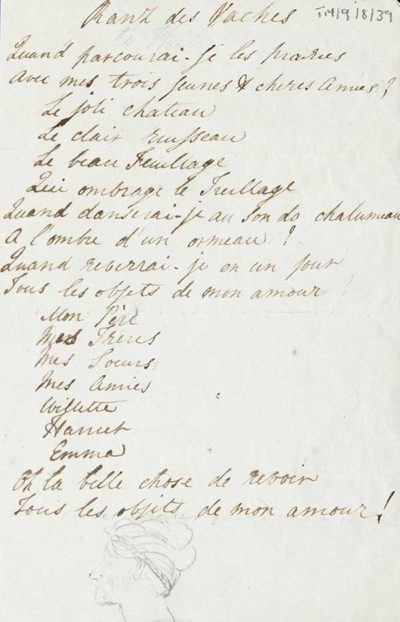 Ranz des Vaches
TM/9/8/39
Quand parcourai-je les prairies
Avec mes trois jeunes & cheres Amies?
Le joli chateau
Le clair ruisseau
Le beau Feuillage
Qui ombrage le Treillage
Quand danserai-je au son do chalumeau
A l'ombre d'un ormeau?
Quand reverrai-je en un jour
Tous les objets de mon amour
Mon Père
Mes Freres
Mes Soeurs
Mes Amies
Harriet
Emma
Oh la belle chose de revoir
Tous les objets de mon amour!